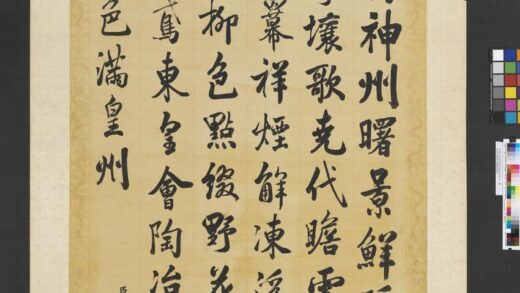 神州曙景鮮
壤歌堯代瞻雲
幕祥煙解凍
柳色點綴野花
鳶東皇會陶冶
色滿皇州
臣